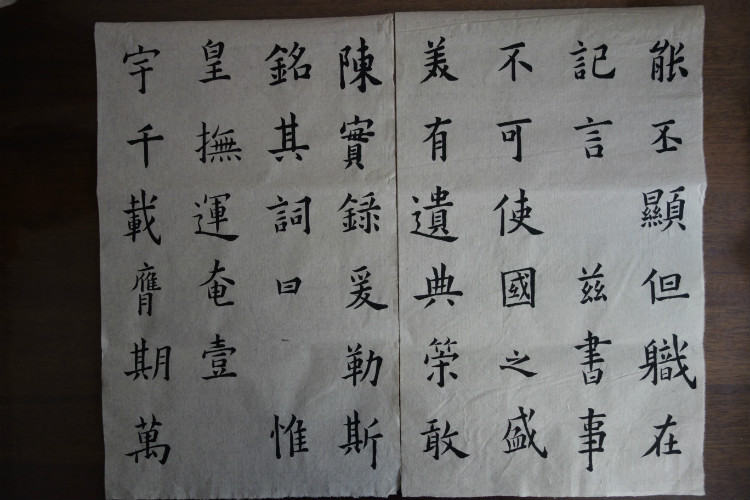 能丕顯但職在
記言 茲書事
不可使國之盛
美有遺典策敢
陳實錄爰勒斯
銘其詞曰 惟
皇撫運奄壹
宇千載膺期萬